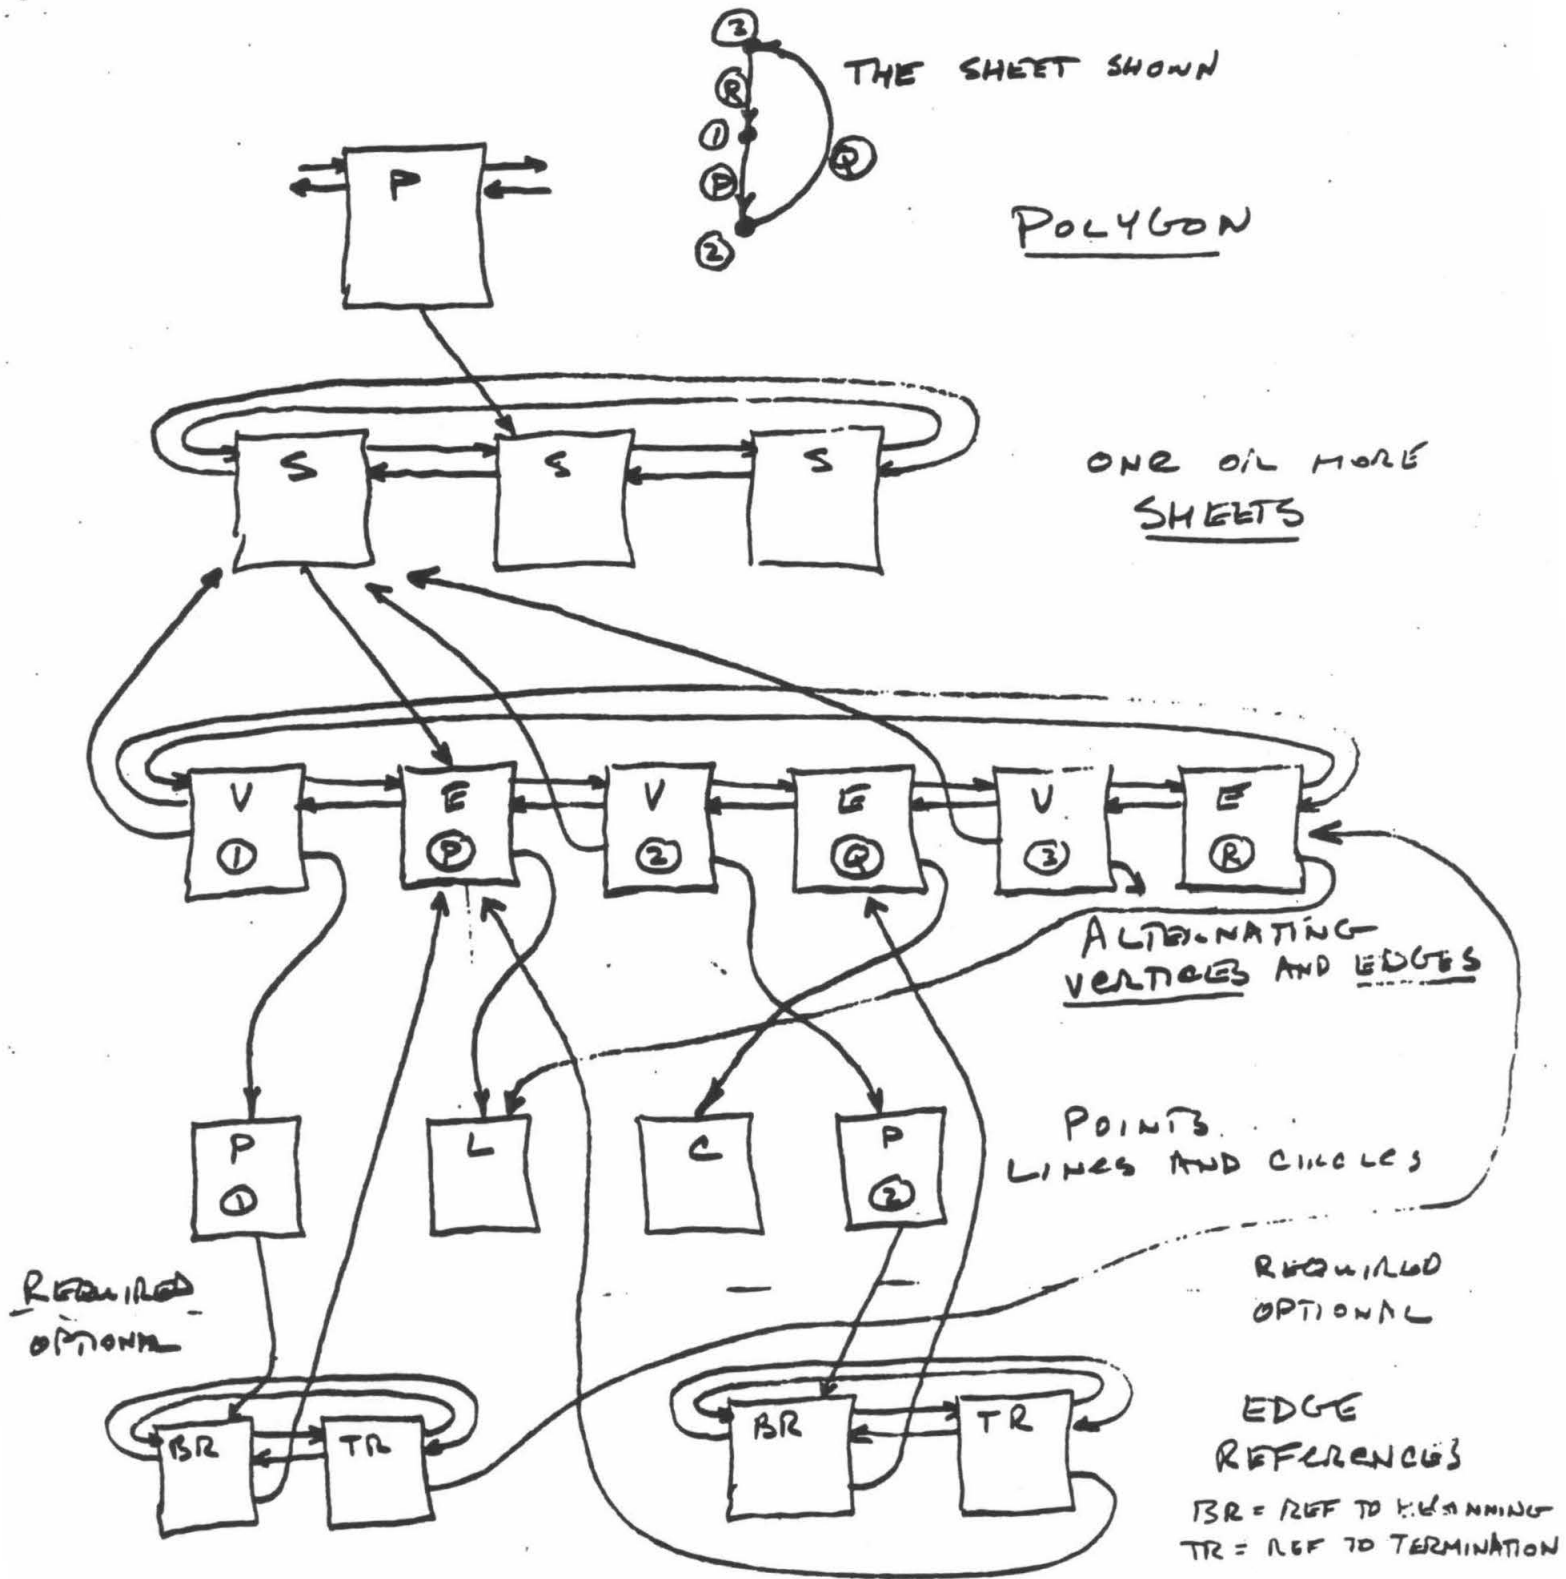 3
THE SHEET SHOWN
R
1
P
Q
2
P
POLYGON
S S S
ONE OR MORE
SHEETS
V E V E V E
1 P 2 Q 3 R
ALTERNATING
VERTICES AND EDGES
P L C P
1 2
POINTS
LINES AND CIRCLES
REQUIRED
OPTIONAL
REQUIRED
OPTIONAL
BR TR BR TR
EDGE
REFERENCES
BR = REF TO BEGINNING
TR = REF TO TERMINATION